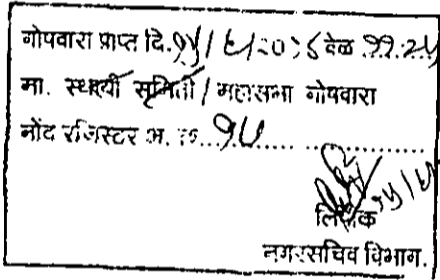 गोषवारा प्राप्त दि. १५/६/२०१६ वेळ ११.२५
मा. स्थायी समिती / महासभा गोषवारा
नोंद रजिस्टर अ. क्र. १५
१५/६
लिपीक
नगरसचिव विभाग.